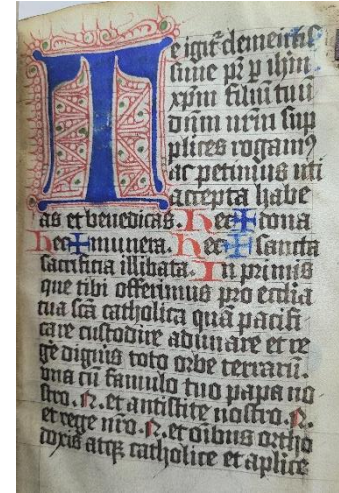 Te igit᷑ clementis
sime pr̄ p ihm̄
xp̄m filiū tuū
dn̄m nrm̄ sup
plices rogamꝰ
ac petimus uti
accepta habe
as et benedicas. Hec ✠ dona
Hec ✠ munera. Hec ✠ sancta
sacrificia illibata. In primis
que tibi offerimus pro eccl̄ia
tua sc̄a catholica quā pacifi
care custodire adunare et re
ge᷑ digneris toto orbe terrarū.
vna cū famulo tuo papa no
stro .N. et antistite nostro .N.
et rege nr̄o .N. et oib̄us ortho
doxis atqꝫ catholice et aplice